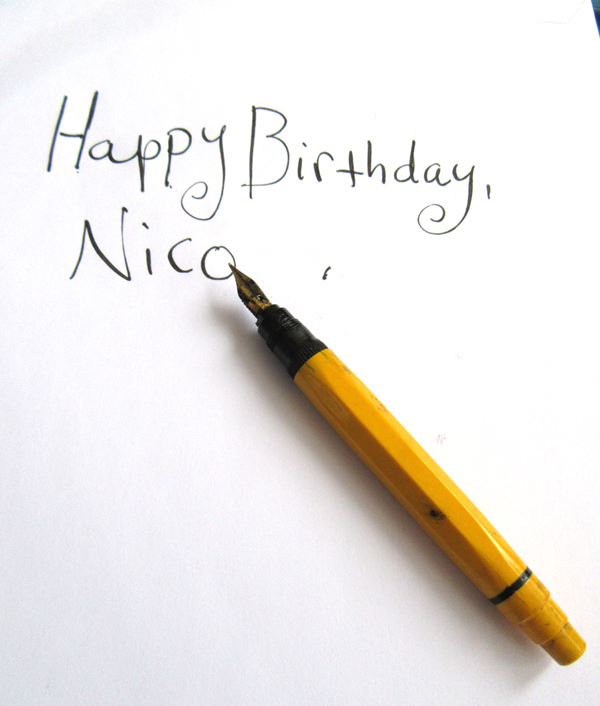 Happy Birthday,
Nico